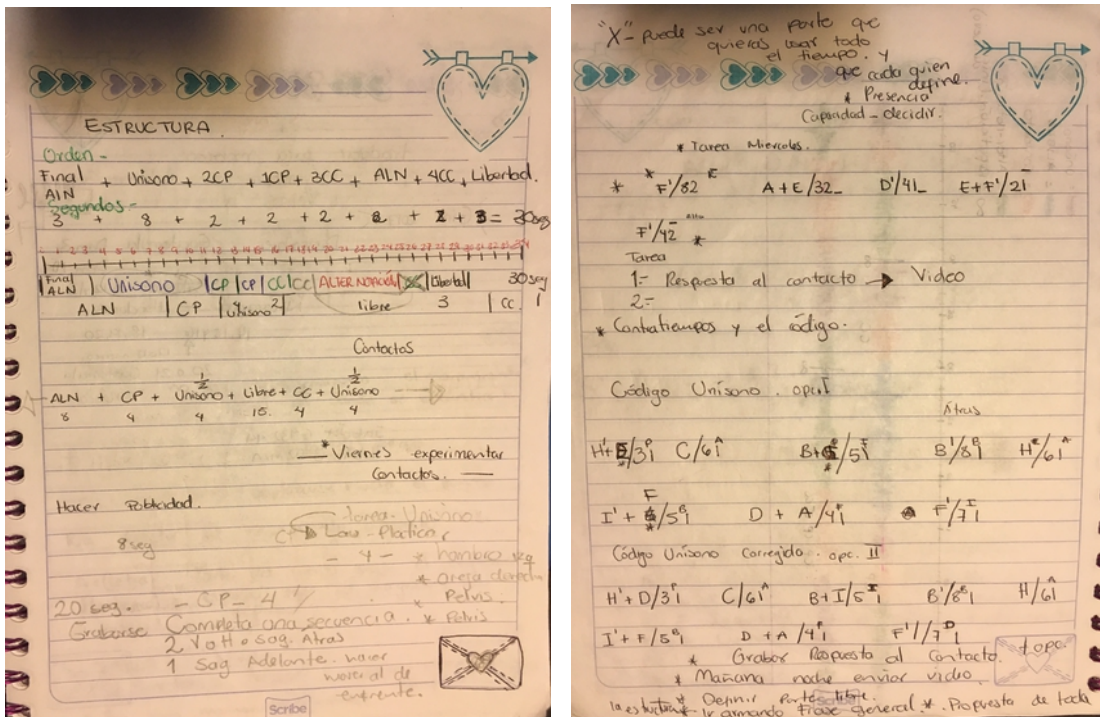 ESTRUCTURA.
Orden -
Final ALN + Unisono + 2CP + 1CP + 3CC + ALN + 4CC + Libertad.
Segundos -
3 + 8 + 2 + 2 + 2 + 8 + 2 + 3 = 30seg
Final ALN | Unisono | CP | CP | CC | CC | ALTERNACIÓN | | Libertad | 30seg
ALN | CP | Unisono 2 | libre 3 | CC. |
Contactos
ALN + CP + 1/2 Unisono + Libre + CC + 1/2 Unisono
8 4 4 15. 4 4
* Viernes experimentar
Contactos. —
Hacer
8seg
Unisono
- 4 - * hombro izq
* oreja derecha
20 seg. - CP - 4 * Pelvis
Grabarse Completa una secuencia. * Pelvis
Atras
1 Sag Adelante.
de enfrente.
Scribe
"X" - puede ser una parte que
quieras usar todo
el tiempo. y
que cada quien
define.
* Presencia
Capacidad - decidir.
* Tarea Miercoles.
* F'/82 E A + E/32_ D'/41_ E+F'/21
F'/42 *
Tarea
1.- Respuesta al contacto → Video
2.-
* Contratiempos y el código.
Código Unísono. opc. I
Atras
C/6¡ᴬ B'/8¡ᴱ
I' + F/5¡ᴱ D + A/4¡ F'/7¡ᴵ
Código Unísono Corregido. opc. II
H' + D/3¡ᴾ C/6¡ᴬ B+I/5¡ᴵ B'/8¡ᴱ H/6¡ᴬ
I' + F/5¡ᴱ D + A/4¡ᴾ F'//7¡ᴰ
* Grabar Respuesta al Contacto. topo.
* Mañana noche enviar video.
* Definir Parte libre.
Ir armando Frase general. * Propuesta de toda
la estructura